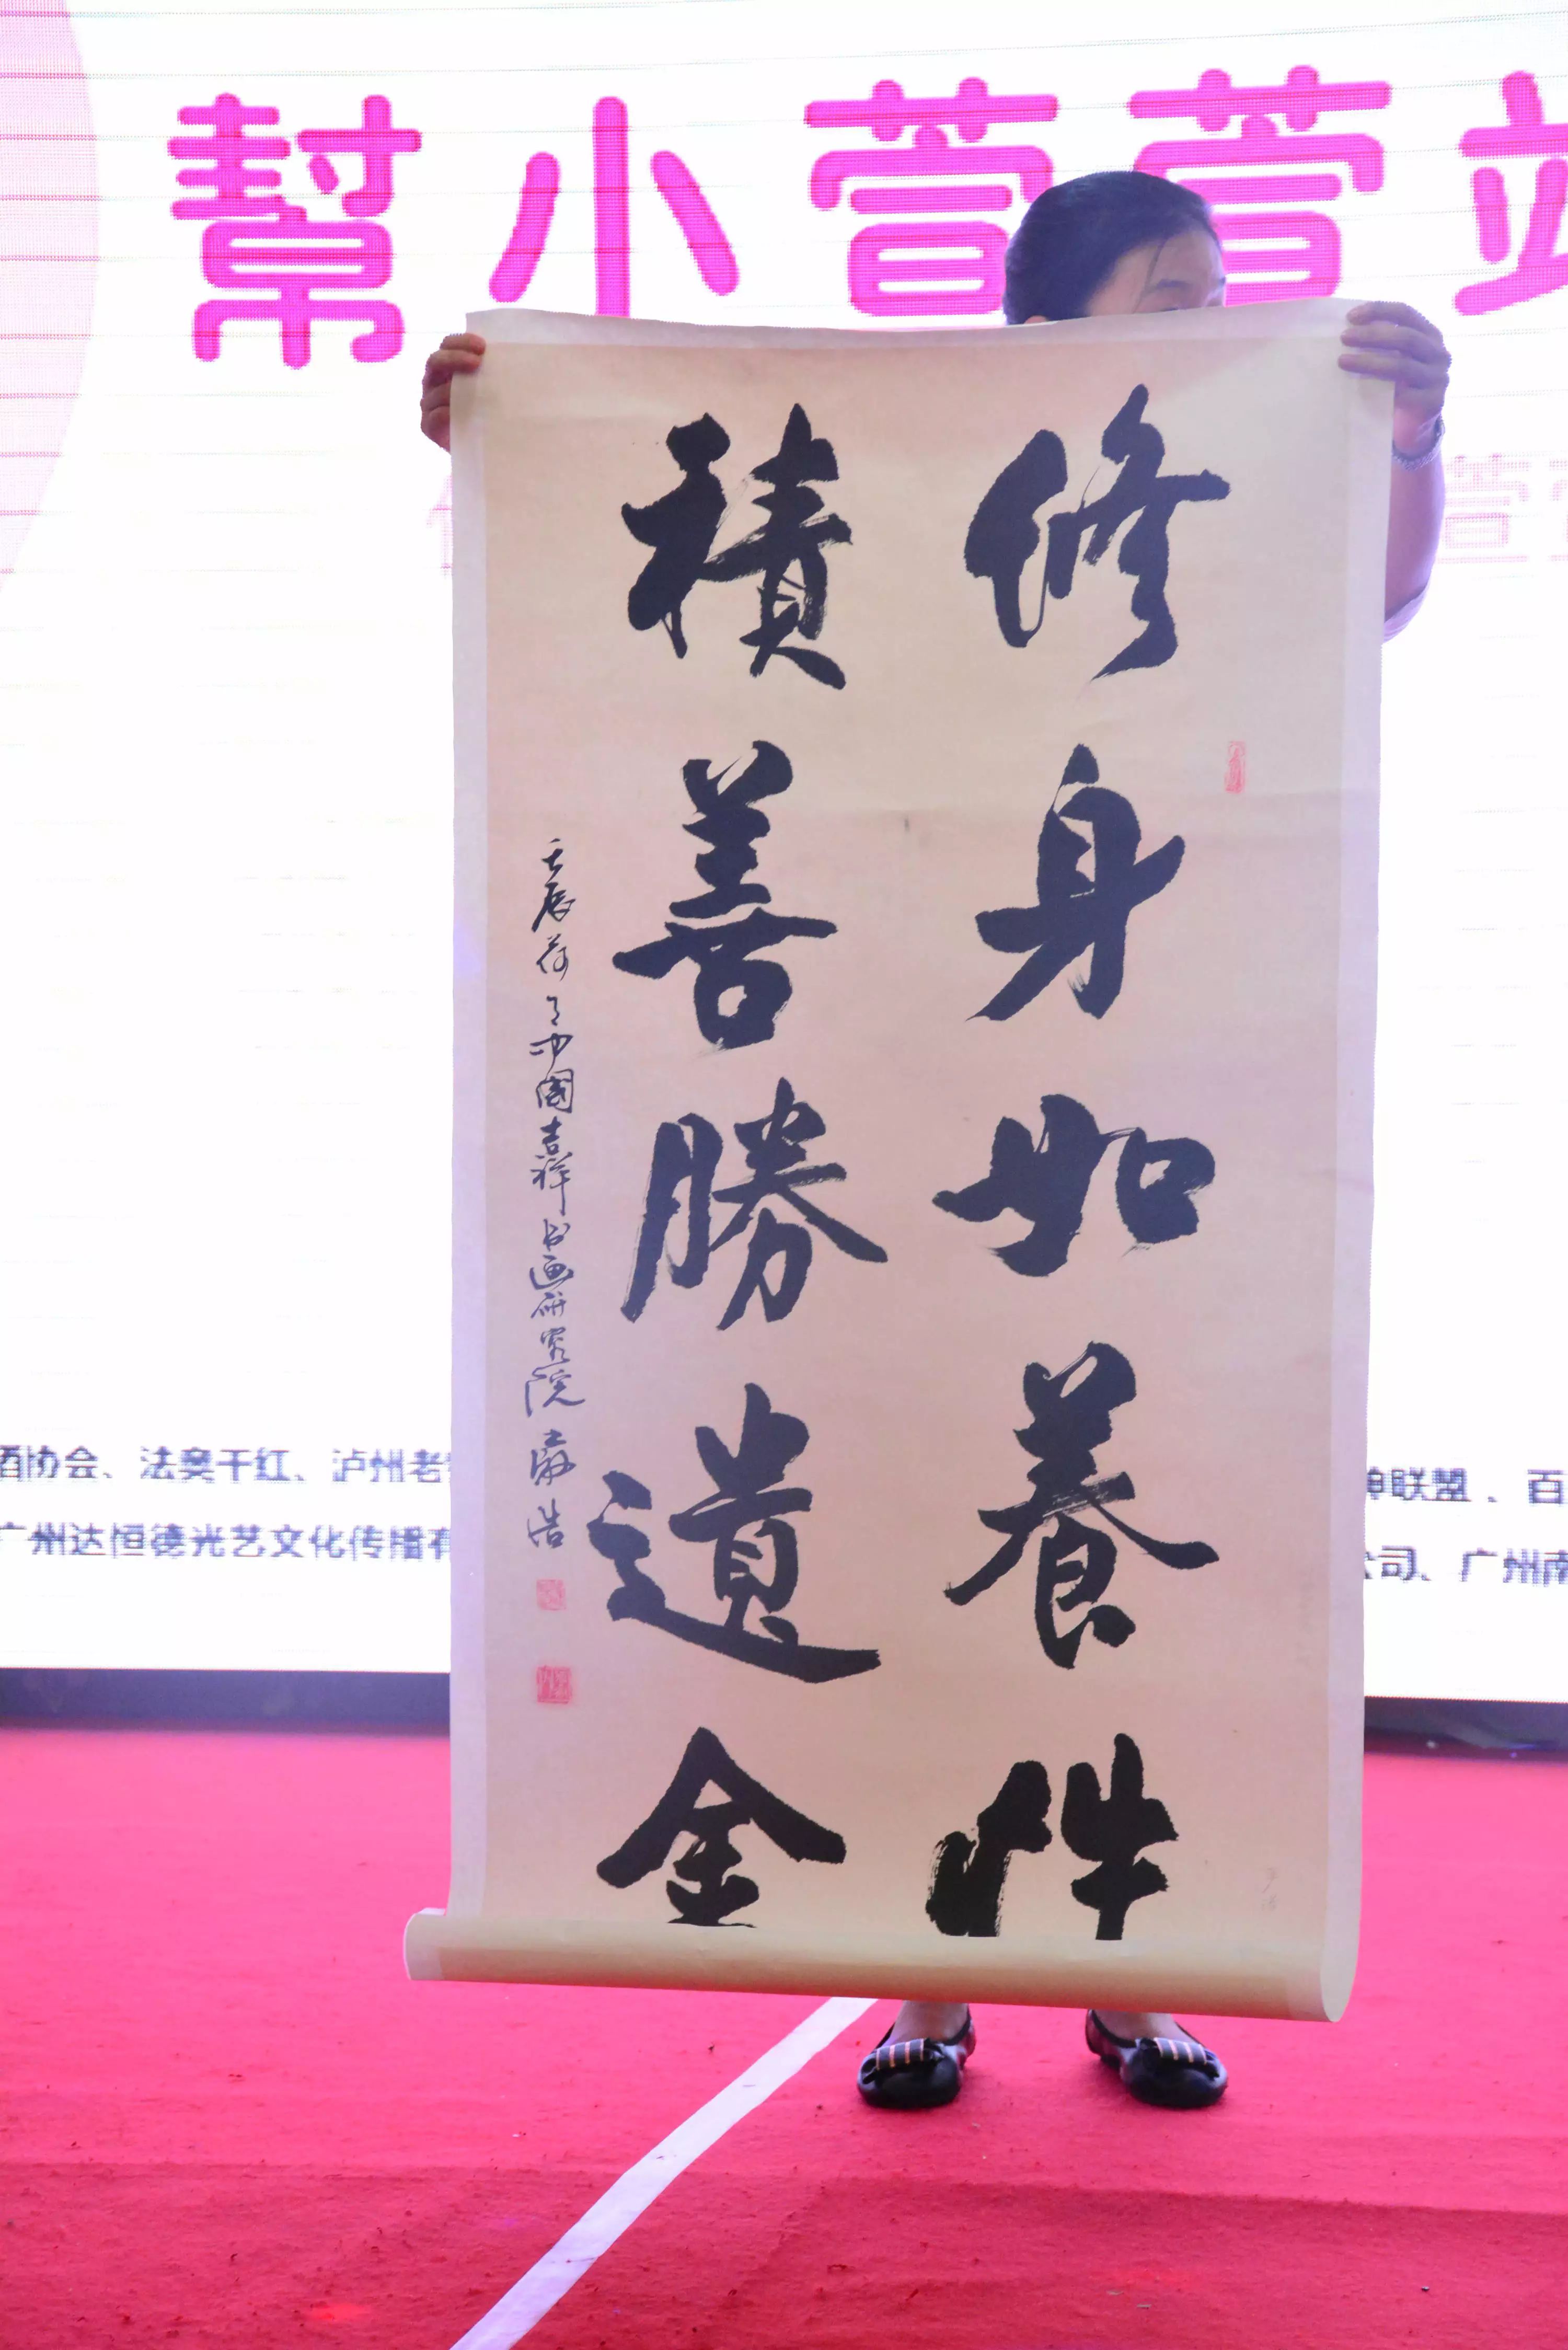 幫小萱萱站
修身如養性
積善勝遺金
壬辰荷月中國吉祥书画研究院嚴浩
酒协会、法奥干红、泸州老
神联盟、百
广州达恒德光艺文化传播有
公司、广州南